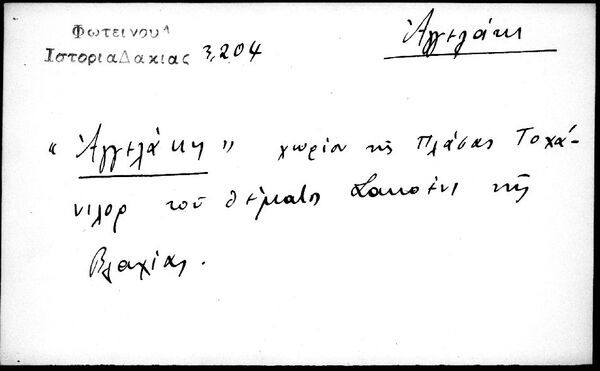 Φωτεινου
ΙστοριαΔακιας 3,204
Ἀγγελάκι
"Ἀγγελάκι" χωρίον τῆς Πλάσας Τοχά-
νιλορ τοῦ θέματος Σακοένι τῆς
Βλαχίας.